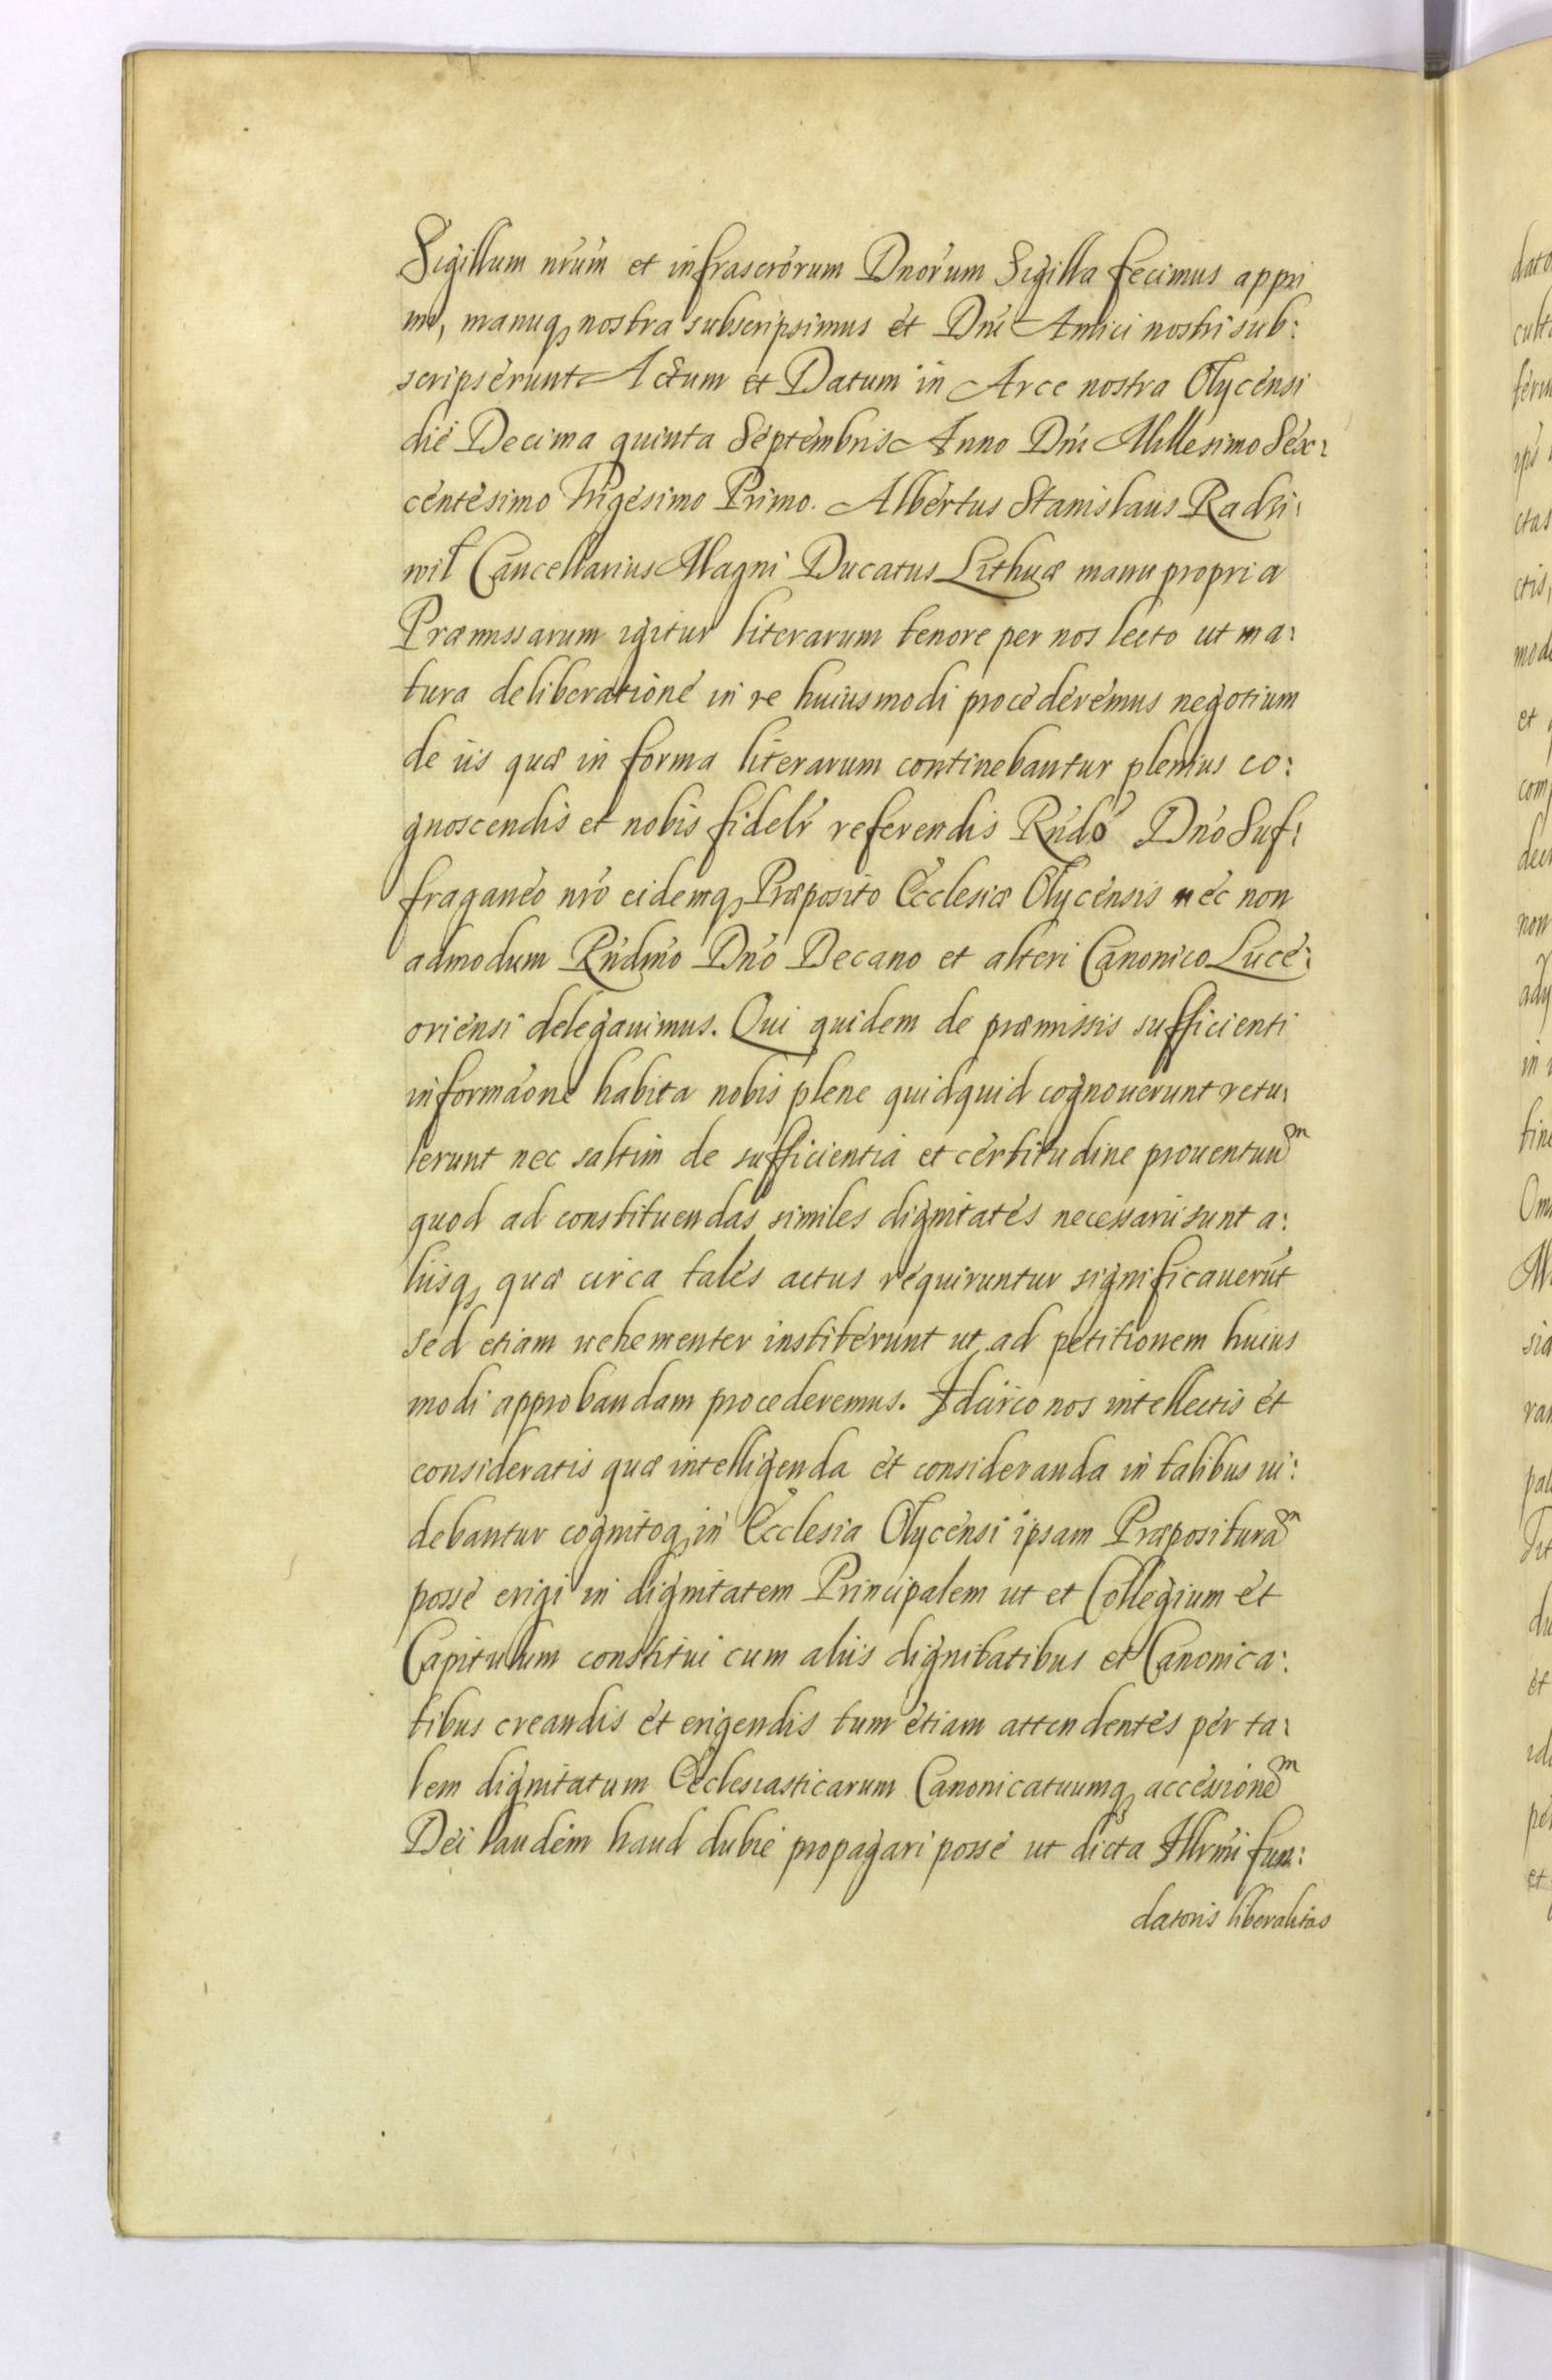 Sigillum nrum et infrascrorum Dnorum Sigilla fecimus appri
mi, manuq, nostra subscripsimus et Dni Amici nostri sub:
scripserunt Actum et Datum in Arce nostra Olycensi
die Decima quinta Septembris Anno Dni Millesimo Sex:
centesimo Trigesimo Primo. Albertus Stanislaus Radzi:
wił Cancellarius Magni Ducatus Lithuæ manu propria
Præmissarum igitur literarum tenore per nos lecto ut ma:
tura deliberatione in re huiusmodi procederemus negotium
de iis quæ in forma literarum continebantur plenius co:
gnoscendis et nobis fidelr referendis Rndo Dno Suf:
fraganeo nro eidemq, Præposito Ecclesiæ Olycensis nec non
admodum Rndmo Dno Decano et alteri Canonico Luce:
oriensi delegauimus. Qui quidem de præmissis sufficienti
informaone habita nobis plene quidquid cognouerunt retu:
lerunt nec saltim de sufficientia et certitudine prouentuum
quod ad constituendas similes dignitates necessarii sunt a:
liisq, quæ circa tales actus requiruntur significauerut
sed etiam uehementer institerunt ut ad petitionem huius
modi approbandam procederemus. Idcirco nos intellectis et
consideratis quæ intelligenda et consideranda in talibus ui:
debantur cognitoq, in Ecclesia Olycensi ipsam Præposituram
posse erigi in dignitatem Principalem ut et Collegium et
Capitulum constitui cum aliis dignitatibus et Canonica:
tibus creandis et erigendis tum etiam attendentes per ta:
lem dignitatum Ecclesiasticarum Canonicatuumq, accessionem
Dei laudem haud dubie propagari posse ut dicta Illrmi fun:
datoris liberalitas